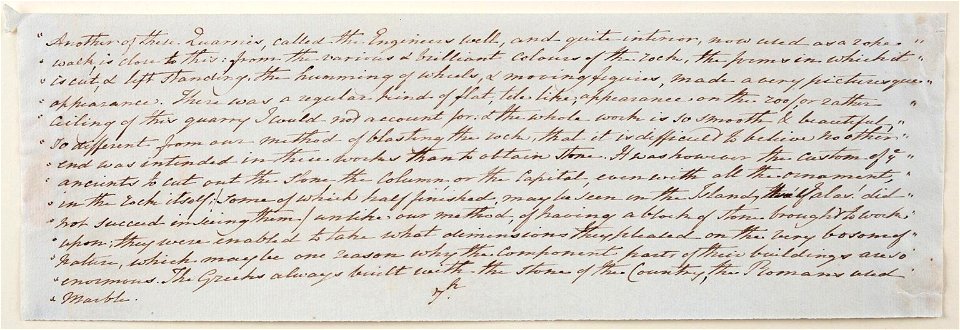 " Another of these Quarries, called the Engineers well, and quite interior, now used as a rope "
" walk is close to this: from the various & brilliant colours of the rock, the forms in which it
" is cut, & left standing, the humming of wheels, & moving figures, made a very picturesque "
" appearance. There was, a regular kind of flat, tile like, appearance on the roof or rather
" ceiling of this quarry I could not account for, & the whole work is so smooth & beautiful, "
" so different from our method of blasting the rock, that it is difficult to believe no other "
" end was intended in these works than to obtain stone. It was however the custom of ye
" ancients to cut out the stone the column, or the Capital, even with all the ornaments,
" in the rock itself; some of which half finished, may be seen in the Island, (alas! did
" not succeed in seeing them) unlike our method, of having a block of stone brought to work
" upon; they were enabled to take what demensions they pleased on the very bosom of
" nature, which may be one reason why the component parts of their buildings are so
" enormous. The Greeks always built with the stone of the Country, the Romans used
" Marble.
7th